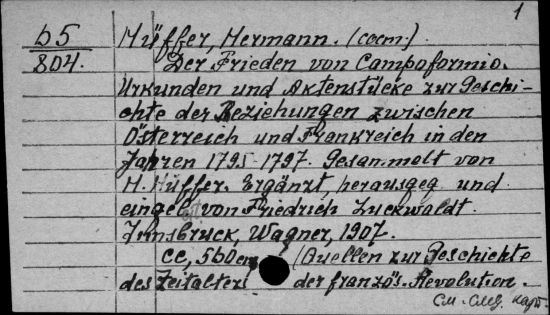 1
Б5
804.
Hüffer, Hermann. (сост.)
Der Frieden von Campoformio.
Urkunden und Aktenstücke zur Geschi-
chte der Beziehungen zwischen
Österreich und Frankreich in den
Jahren 1795-1797. Gesammelt von
H. Hüffer. Ergänzt, herausgeg und
eingel. von Friedrich Luckwaldt.
Innsbruck, Wagner, 1907.
CC, 560 c. (Quellen zur Geschichte
des Zeitalters der französ. Revolution.
См. след. карт.